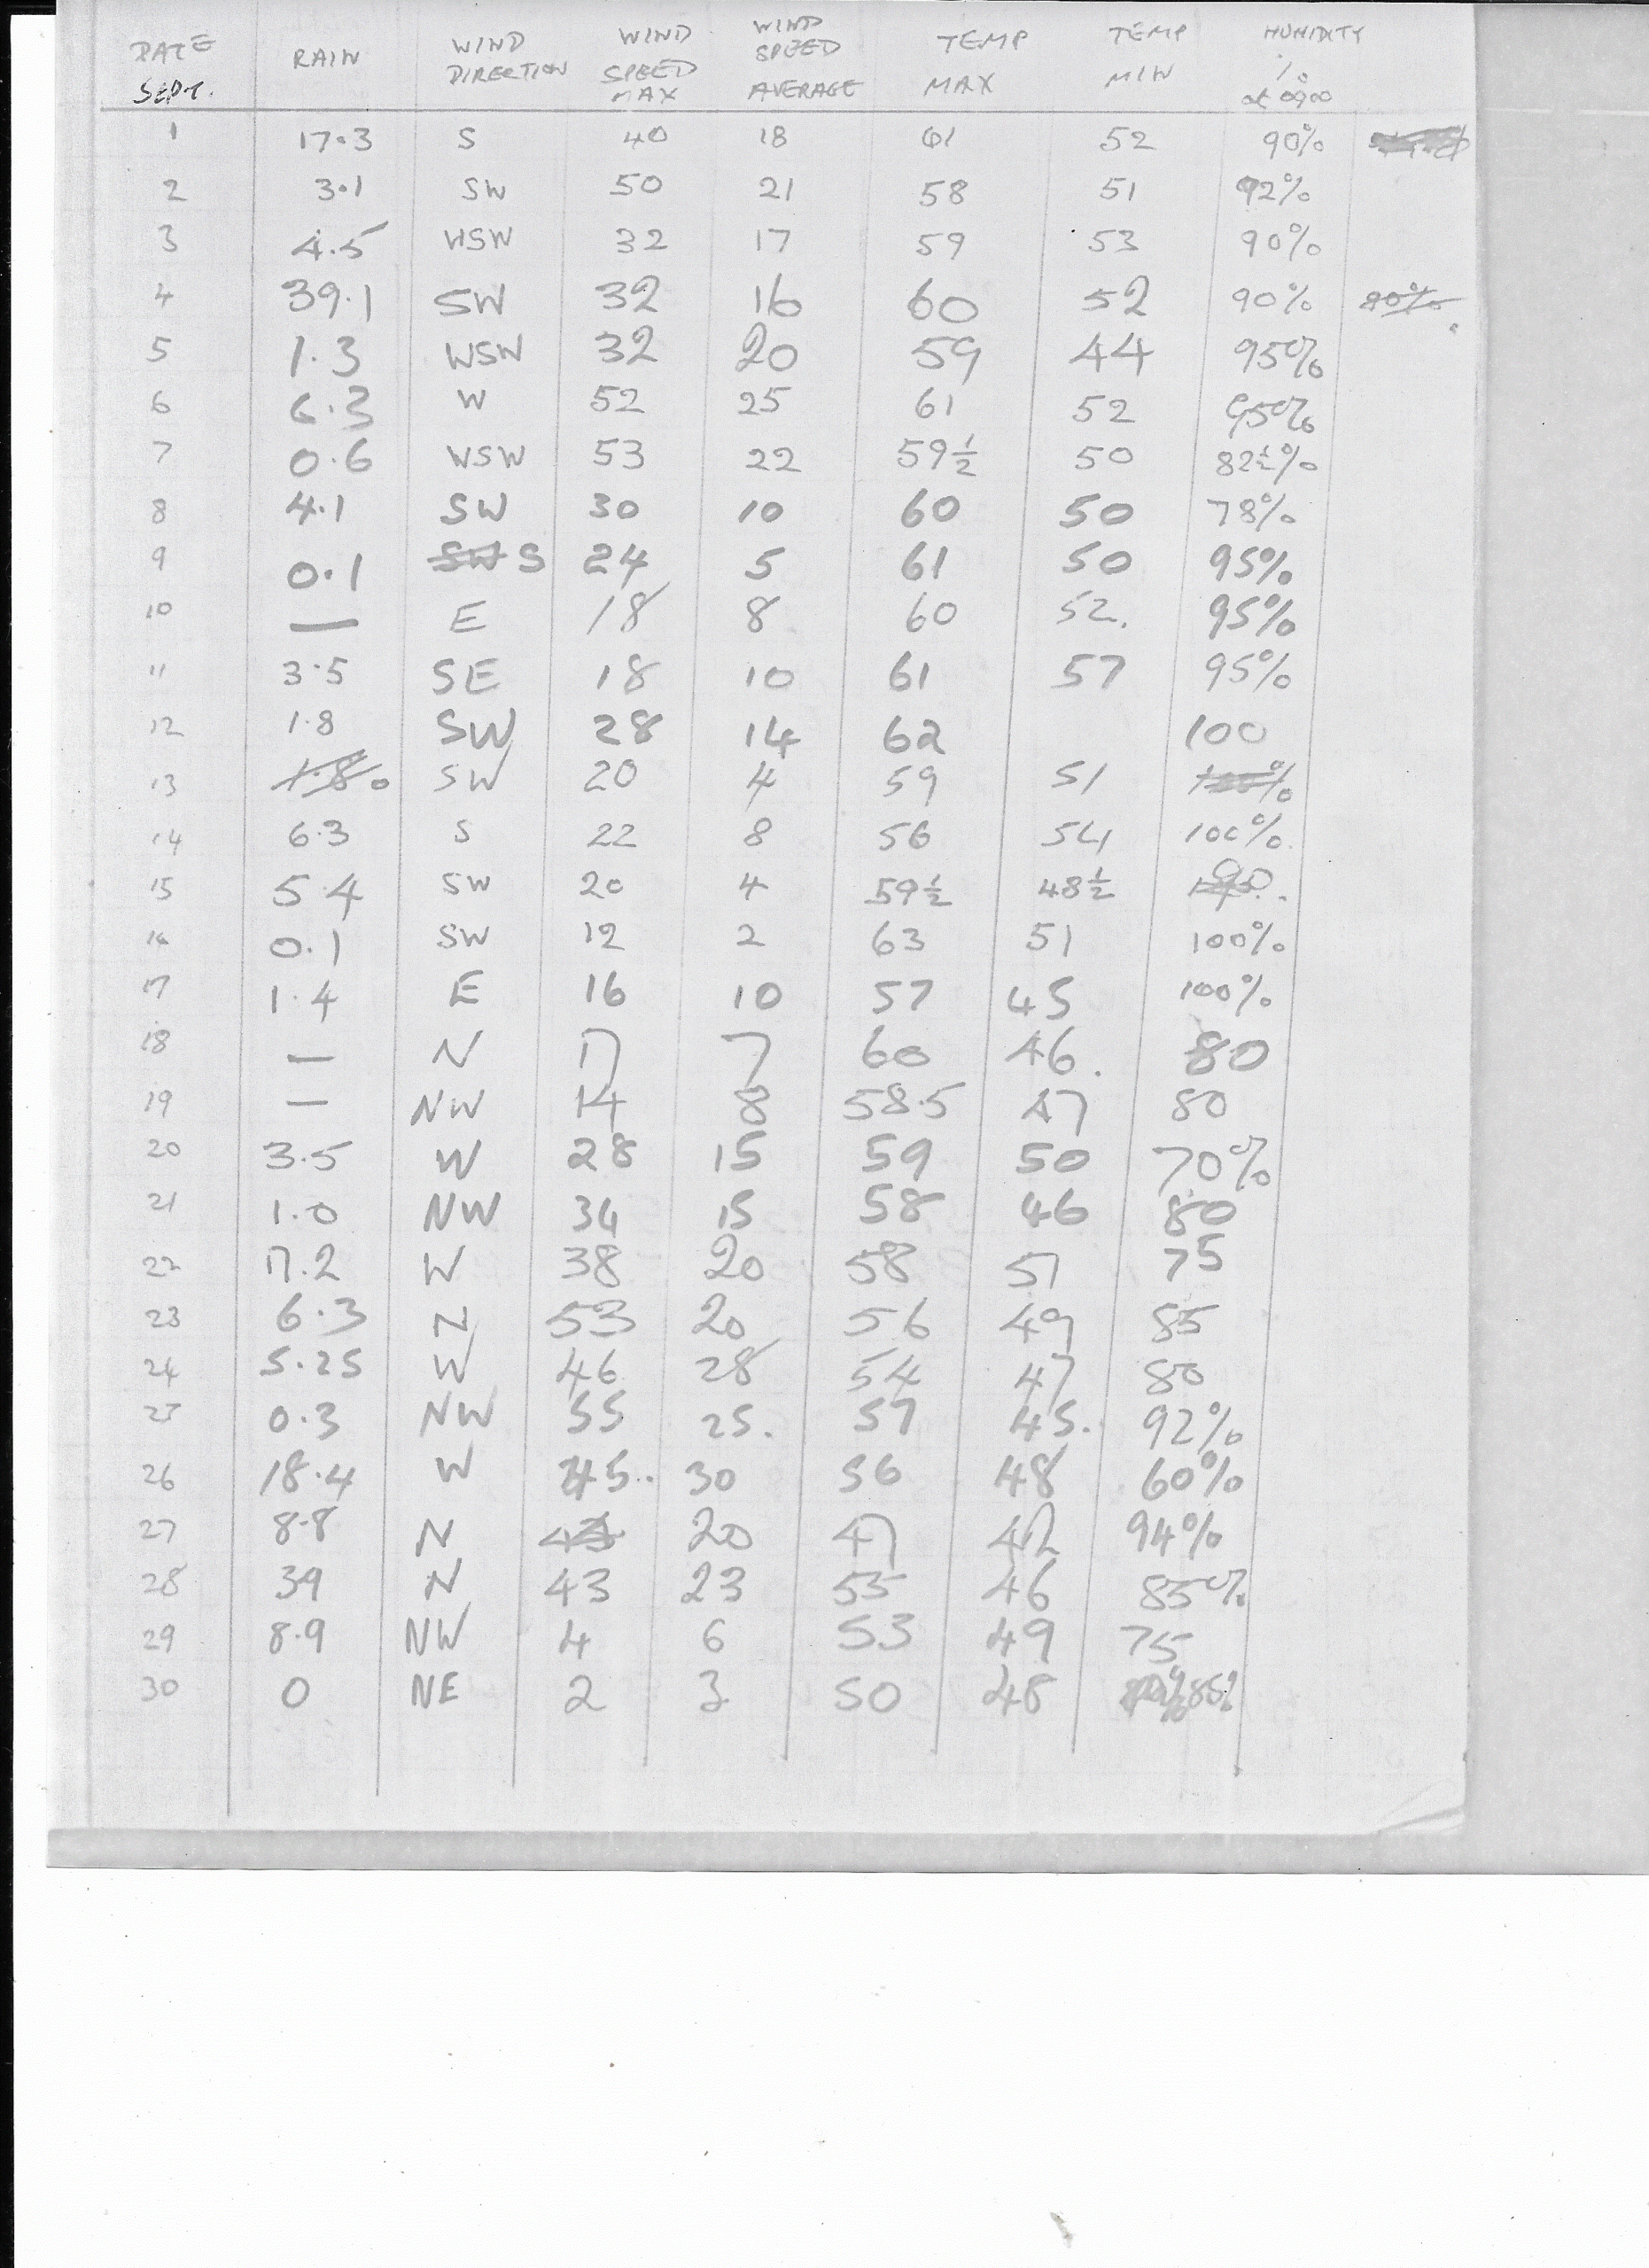 DATE SEPT. RAIN WIND DIRECTION WIND SPEED MAX WIND SPEED AVERAGE TEMP MAX TEMP MIN HUMIDITY % at 0900
1 17.3 S 40 18 61 52 90%
2 3.1 SW 50 21 58 51 92%
3 4.5 WSW 32 17 59 53 90%
4 39.1 SW 32 16 60 52 90% 80%
5 1.3 WSW 32 20 59 44 95%
6 6.3 W 52 25 61 52 95%
7 0.6 WSW 53 22 59½ 50 82½%
8 4.1 SW 30 10 60 50 78%
9 0.1 SW S 24 5 61 50 95%
10 — E 18 8 60 52. 95%
11 3.5 SE 18 10 61 57 95%
12 1.8 SW 28 14 62 100
13 1.8 0 SW 20 4 59 51 100%
14 6.3 S 22 8 56 54 100%.
15 5.4 SW 20 4 59½ 48½ 90
16 0.1 SW 12 2 63 51 100%
17 1.4 E 16 10 57 45 100%
18 — N 17 7 60 46. 80
19 — NW 14 8 58.5 47 80
20 3.5 W 28 15 59 50 70%
21 1.0 NW 34 15 58 46 80
22 17.2 W 38 20 58 51 75
23 6.3 N 53 20 56 49 85
24 5.25 W 46 28 54 47 80
25 0.3 NW 55 25. 57 45. 92%
26 18.4 W 45.. 30 56 48 60%
27 8.8 N 20 47 42 94%
28 39 N 43 23 55 46 85%
29 8.9 NW 4 6 53 49 75
30 0 NE 2 3 50 48 85%